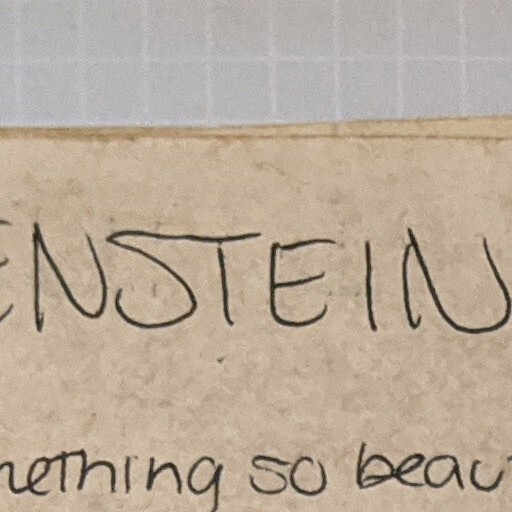 ENSTEIN
mething so beau